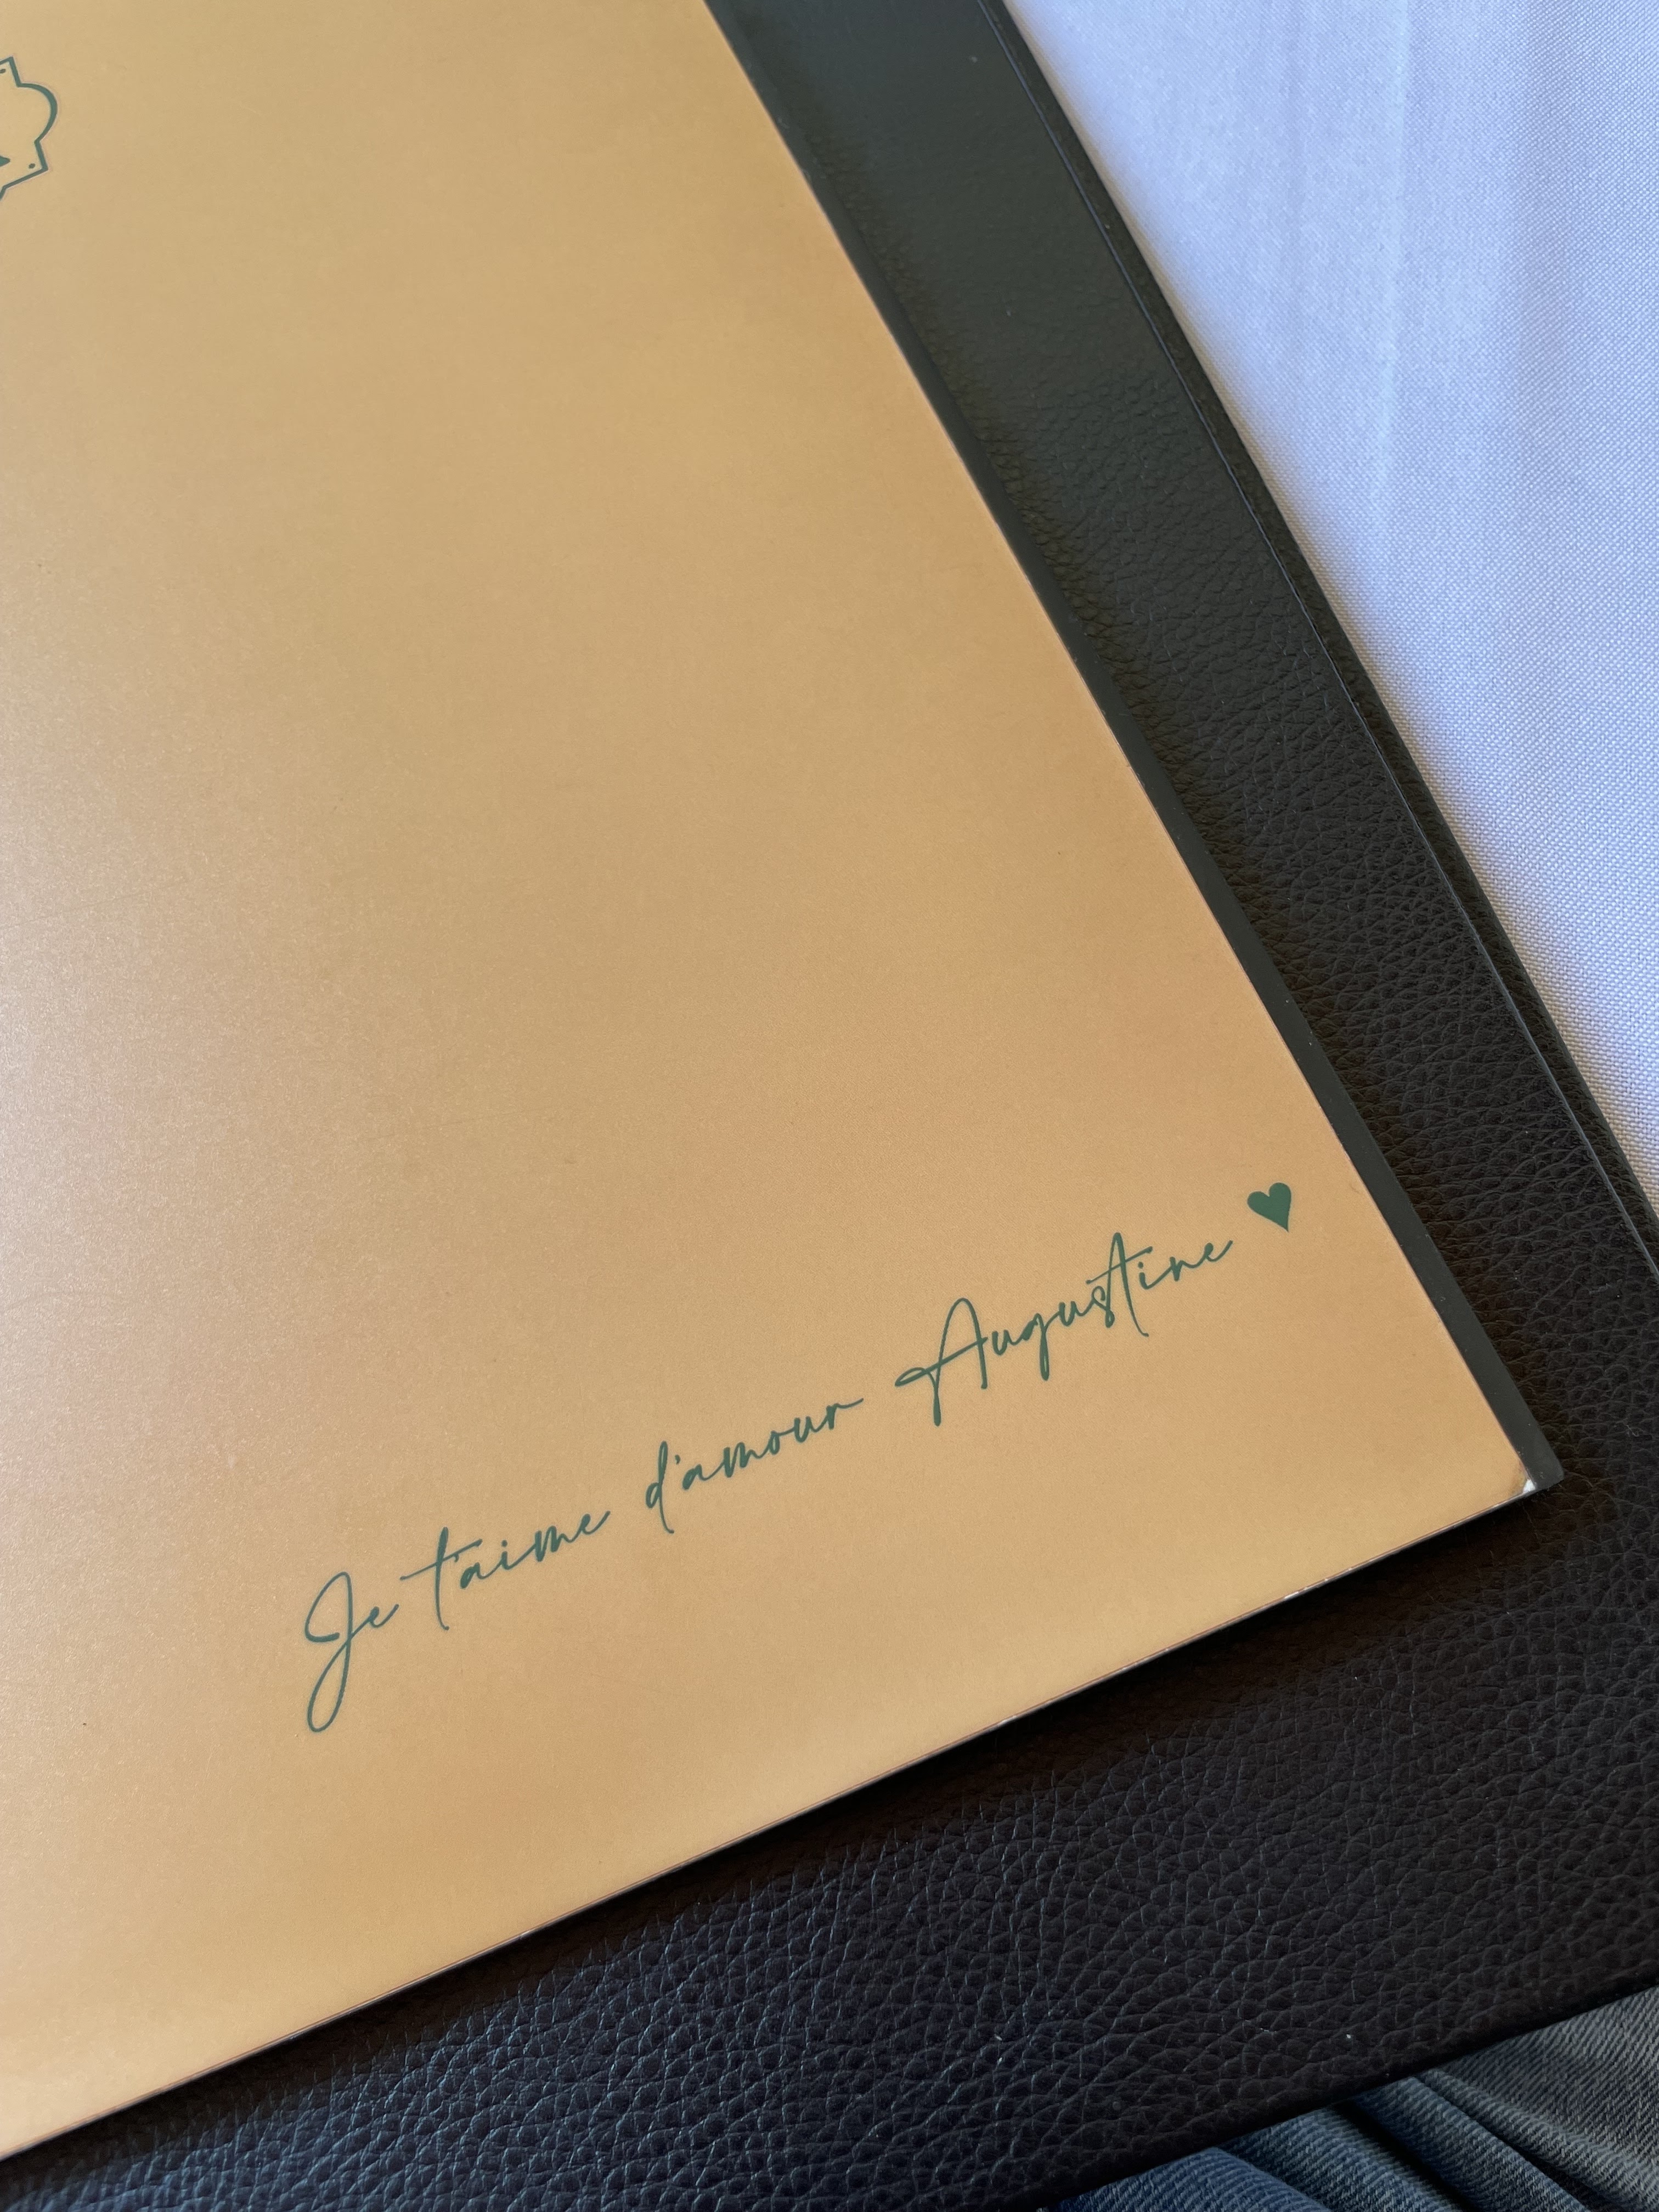 Je t'aime d'amour Augustine ♥